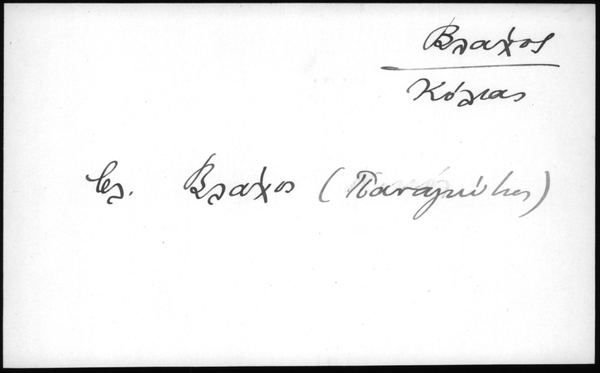 Βλάχος
Κόλιας
βλ. Βλάχος (Παναγιώτης)